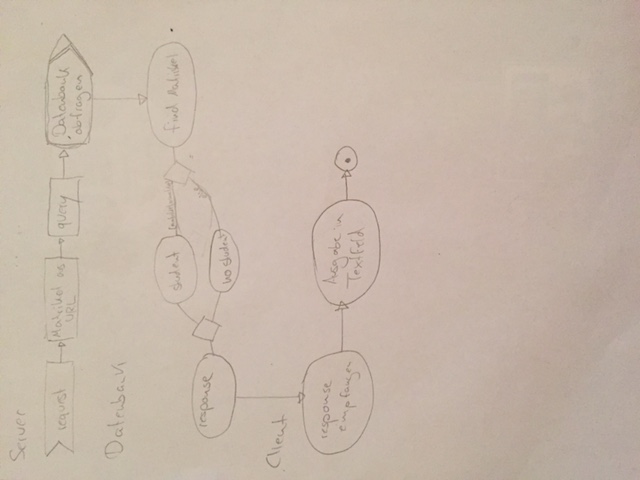 Server
request
Matrikel aus
URL
query
Datenbank
abfragen
Datenbank
find Matrikel
student
else
no student
response
Client
response
empfangen
Ausgabe in
Textfeld